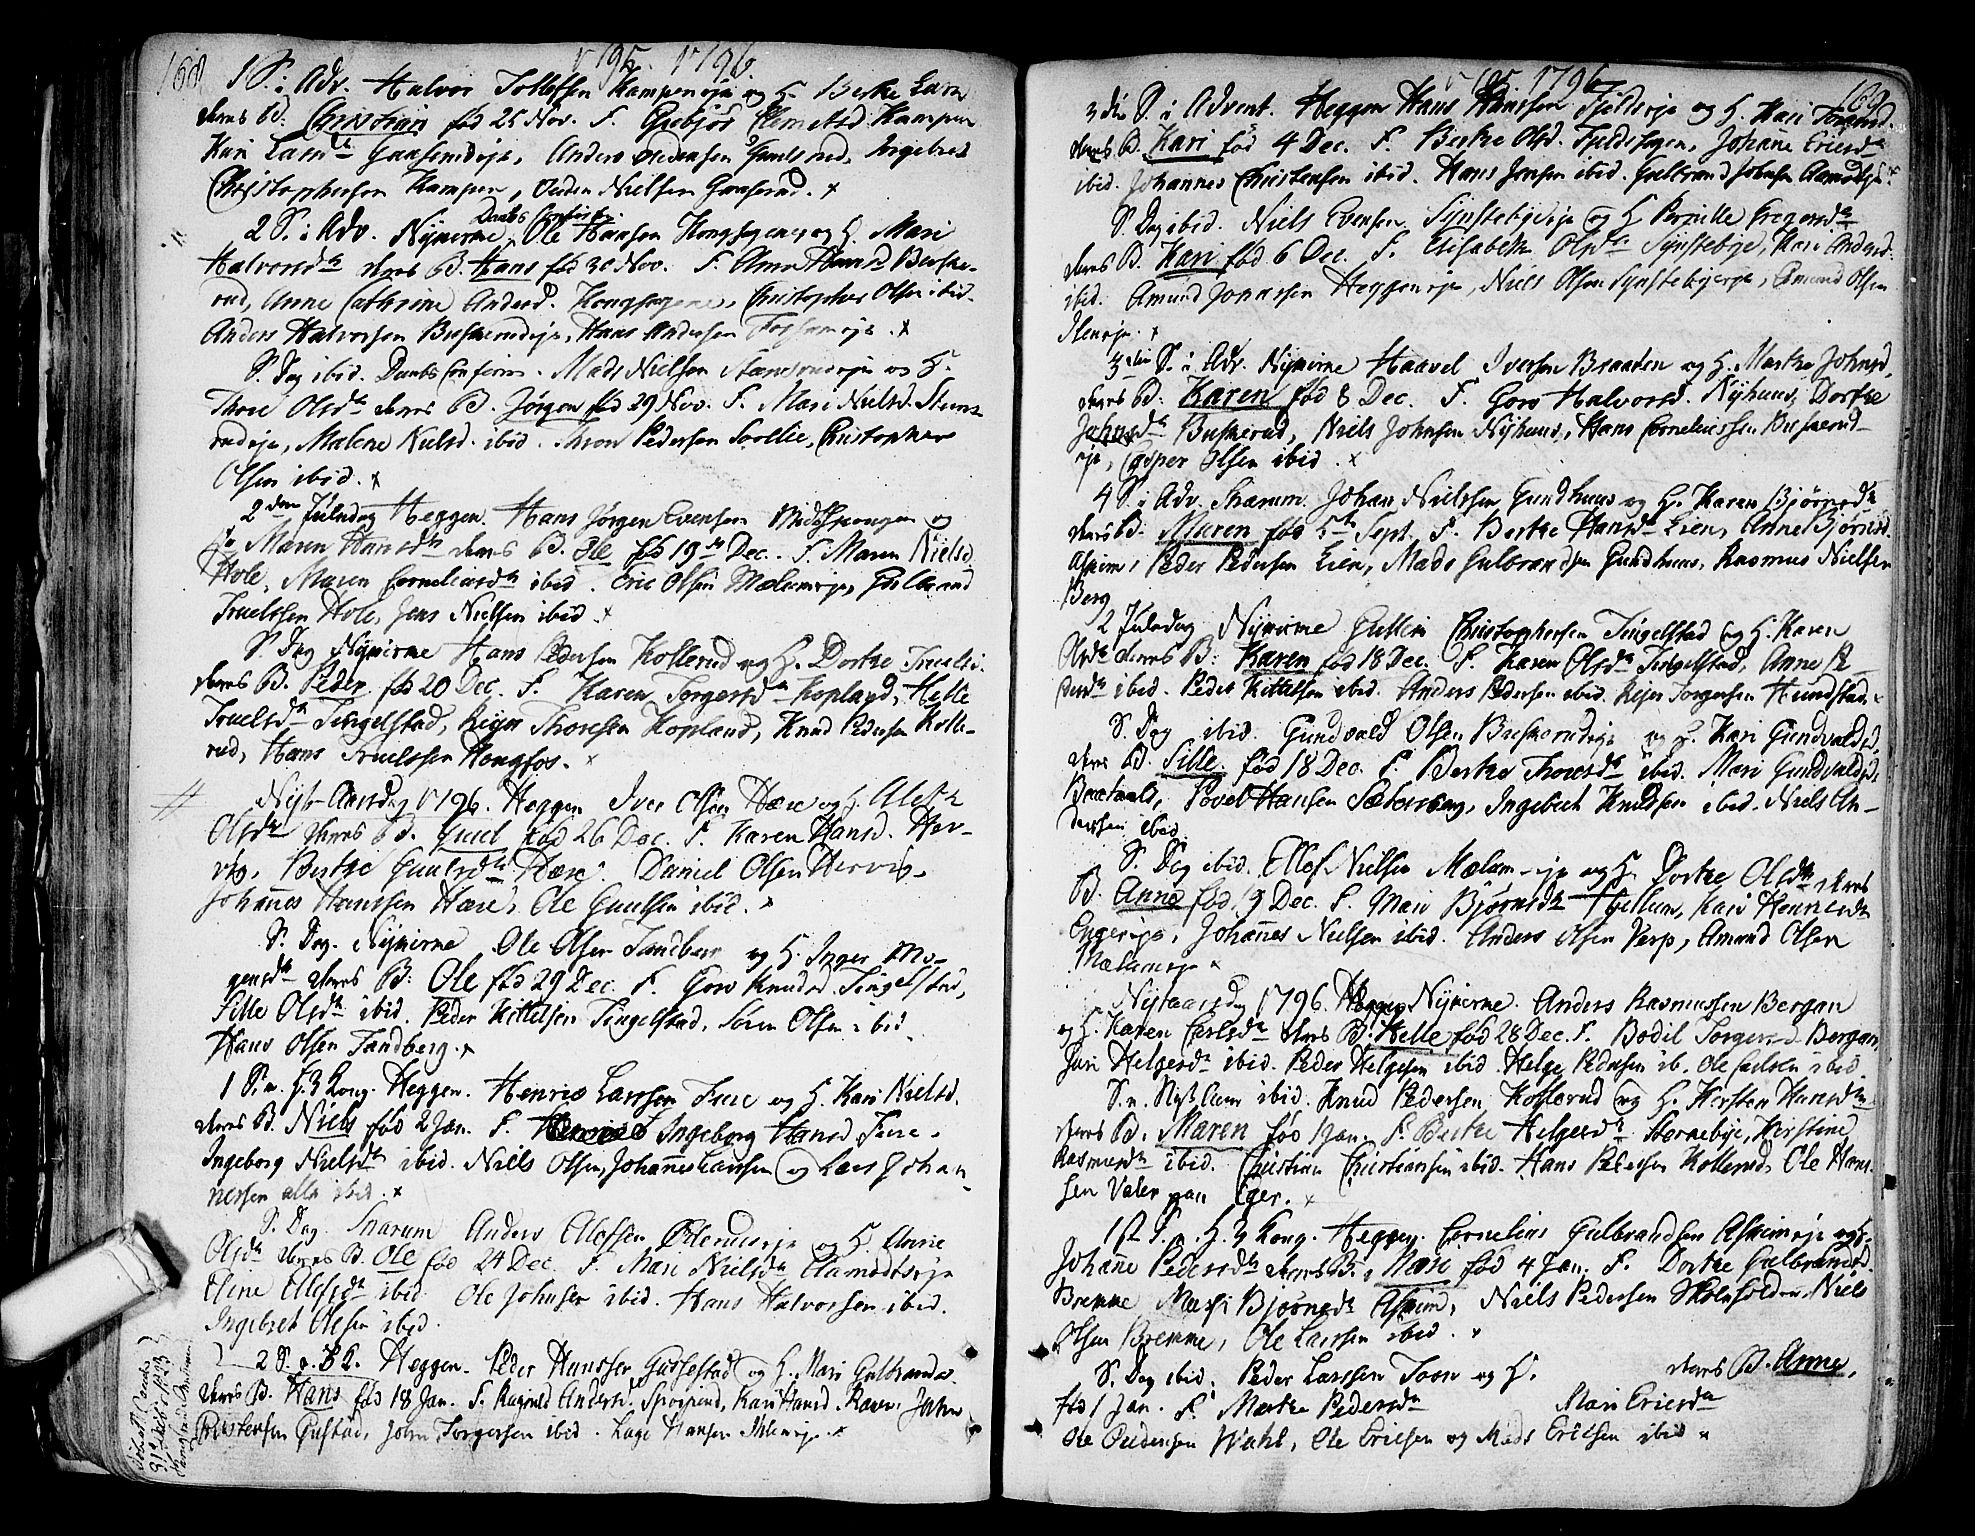 168
1795. 1796
1 S. i Adv. Halvor Tollefsen Kampeneje og H. Berthe Lars
deres B. Christian fød 25 Nov. F. Giebjør Clemetsd. Kampen
Kari Larsdr. Gaaserudeje, Anders Gudensen Gaaserud, Ingebret
Christophersen Kampen, Gulden Nielsen Gaaserud. x
Daabs Confirm.
2 S. i Adv. Nykirke, Ole Hansen Kongsagene og H. Mari
Halvorsdr. deres B. Hans fød 30 Nov. F. Anne Hansd. Buske-
rud, Anne Cathrine Andersd. Kongsagene, Christopher Olsen ibid.
Anders Halvorsen Buskerudeje, Hans Andersen Fossumeje. x
S. Dag ibid. Daabs Confirm. Mads Nielsen og H.
Thore Olsdr. deres B. Jørgen fød 29 Nov. F. Mari Nielsd. Stens-
rudeje, Malene Nielsd. ibid. Thron Pedersen Sørlie, Christopher
Olsen ibid. x
2den Juledag Heggen. Hans Jørgen Evensen Midtspongen og
H. Maren Hansdr. deres B. Ole fød 19de Dec. F. Maren Nielsd.
Hole, Maren Corneliusdr. ibid. Eric Olsen Mælumeje, Gulbrand
Truelssen Hole, Jens Nielsen ibid. x
S. Dag Nykirke Hans Pedersen Kollerud og H. Dorthe Truelsd.
deres B. Peder fød 20 Dec. F. Karen Torgersdr. Kopland, Helle
Truelsdr. Tingelstad, Reyer Thoresen Kopland, Knud Pedersen Kolle-
rud, Hans Truelssen Kongfos. x
Nyt-Aarsdag 1796. Heggen Iver Olsen Hære og H. Aleth
Olsdr. deres B. Guul fød 26 Dec. F. Karen Hansd. Her-
vig. Berthe Guulsdr. Hære. Daniel Olsen Hervig.
Johannes Hanssen Hære, Ole Guulsen ibid. x
S. Dag. Nykirke Ole Olsen Tandberg og H. Inger Mo-
gensdr. deres B. Ole fød 29 Dec. F. Goro Knudsd. Tingelstad,
Sille Olsdr. ibid. Peder Kittelsen Tingelstad, Søren Olsen ibid.
Hans Olsen Tandberg. x
1 S. e. H. 3 Kong. Heggen. Henric Larssen Fure og H. Kari Nielsd.
deres B. Niels fød 2 Jan. F. Ingeborg Hansd Fure.
Ingeborg Nielsdr. ibid. Niels Olsen, Johannes Larssen og Lars Johan-
nessen alle ibid. x
S. Dag. Snarum Anders Olefsen og H. Anne
Olsdr. deres B. Ole fød 24 Dec. F. Mari Nielsdr. Aamodtseje
Eline Olefsdr. ibid. Ole Johnsen ibid. Hans Halvorsen ibid.
Ingebret Olesen ibid.
2 S. e. H. 3 K. Heggen. Peder Hanssen Gussestad og H. Mari Gulbrandsd.
deres B. Hans fød 18 Jan. F. Ragnild Andersd. Kari Hansd. Raaen, John
Christensen Gustad, John Torgersen ibid. Lage Hansen x
1795. 1796
169
3die S. i Advent. Heggen Hans Hanssen Fjeldeje og H. Kari
deres B. Kari fød 4 Dec. F. Berthe Olsd. Fjeldhagen, Johanne Ericsdr.
ibid. Johannes Christensen ibid. Hans Jensen ibid. Gulbrand Johnsen Aamodtseje. x
S. Dag ibid. Niels Evensen Synstebyeje og H. Pernille Gregersdr.
deres B. Kari fød 6 Dec. F. Elisabeth Olsdr. Synstebye, Kari Andersd.
ibid. Amund Jonassen Heggeneje, Niels Olsen Synstebyeeje, Amund Olsen
x
3die S. i Adv. Nykirke Haavel Iversen Braaten og H. Marthe Johnsd.
deres B. Karen fød 8 Dec. F. Goro Halvorsd. Nyhuus, Dorthe
Johnsdr. Buskerud, Niels Johnsen Nyhuus, Hans Corneliussen Buskerud-
eje, Casper Olsen ibid. x
4 S. i Adv. Snarum. Johan Nielssen Gundhuus og H. Karen Bjørnsdr.
deres B. Maren fød 5te Sept. F. Berthe Hansdr. Lien, Anne Bjørnsd.
Askim, Peder Pedersen Lien, Mads Gulbrandsen Gundhuus, Rasmus Nielsen
Berg
2 Juledag Nykirke Gullik Christophersen Tingelstad og H. Karen
Olsdr. deres B. Karen fød 18 Dec. F. Karen Olsdr. Tingelstad, Anne Pe-
dersdr. ibid. Peder Kittelsen ibid. Anders Pedersen ibid. Reyer Torgersen Hundstad.
S. Dag ibid. Gundvald Olsen Buskerudeje og H. Kari Gundvaldsd.
deres B. Sille fød 18 Dec. F. Berthe Thoresdr. ibid. Mari Gundvaldsd.
Povel Hansen Sætersberg, Ingebret Knudsen ibid. Niels An-
dersen ibid.
S. Dag ibid. Ellef Nielsen Mælumeje og H. Dorthe Olsdr. deres
B. Anne fød 19 Dec. F. Mari Bjørnsdr. Hellum, Kari Henricsdr
Engereje, Johannes Nielsen ibid. Anders Olsen Verp, Amund Olsen
Mælumeje x
Nytaarsdag 1796. Nykirke. Anders Rasmussen Bergan
og H. Karen Carlsdr. deres B. Helle fød 28 Dec. F. Bodil Torgersd. Bergan,
Juri Helgersdr. ibid. Peder Helgesen ibid. Helge Pedersen ib. Ole ibid.
S. e. Nytaar ibid. Knud Pedersen Kollerud og H. Kersten Hansdr.
deres B. Maren fød 1 Jan. F. Berthe Helgesdr. Hornebye, Kirstine
Rasmusdr. ibid. Christian Christiansen ibid. Hans Pedersen Kollerud, Ole Hans-
sen Valer paa Eger. x
1ste S. e. H. 3 Kong. Heggen. Cornelius Gulbrandsen Askimeje og H.
Johanne Pedersdr. deres B. Mari fød 4 Jan. F. Dorthe Gulbrandsd.
Bremme Mari Bjørnsdr. Askim, Niels Pedersen Skoleholder, Niels
Olsen Bremme, Ole Larssen ibid. x
S. Dag ibid. Peder Larssen Toon og H. deres B. Anne,
fød 1 Jan. F. Marthe Pedersdr. Mari Ericsdr
Ole Pedersen Wahl, Ole Ericsen og Mads Ericsen ibid x